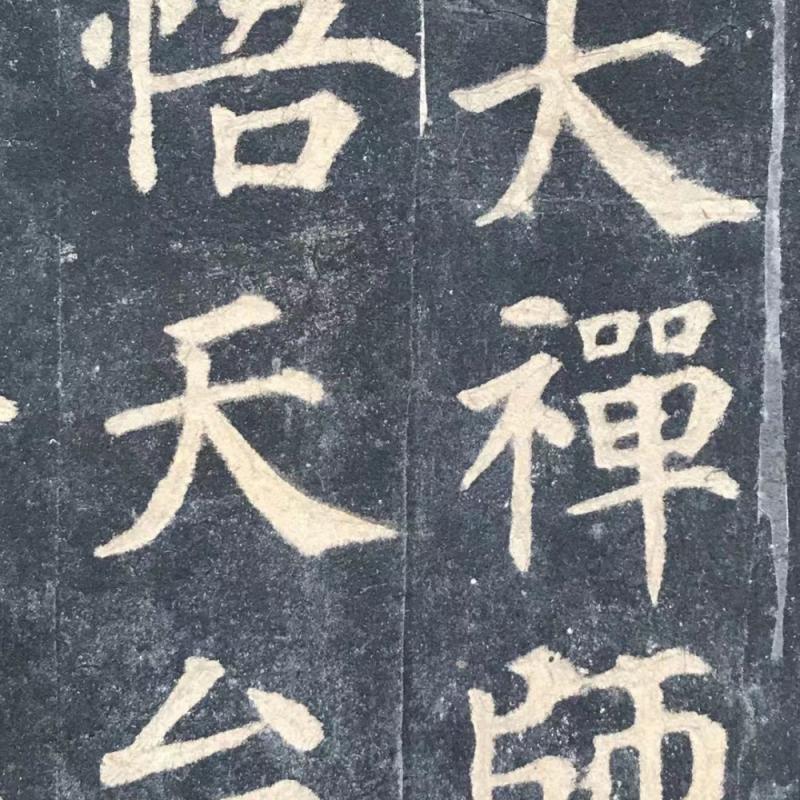 大禪師
悟天台